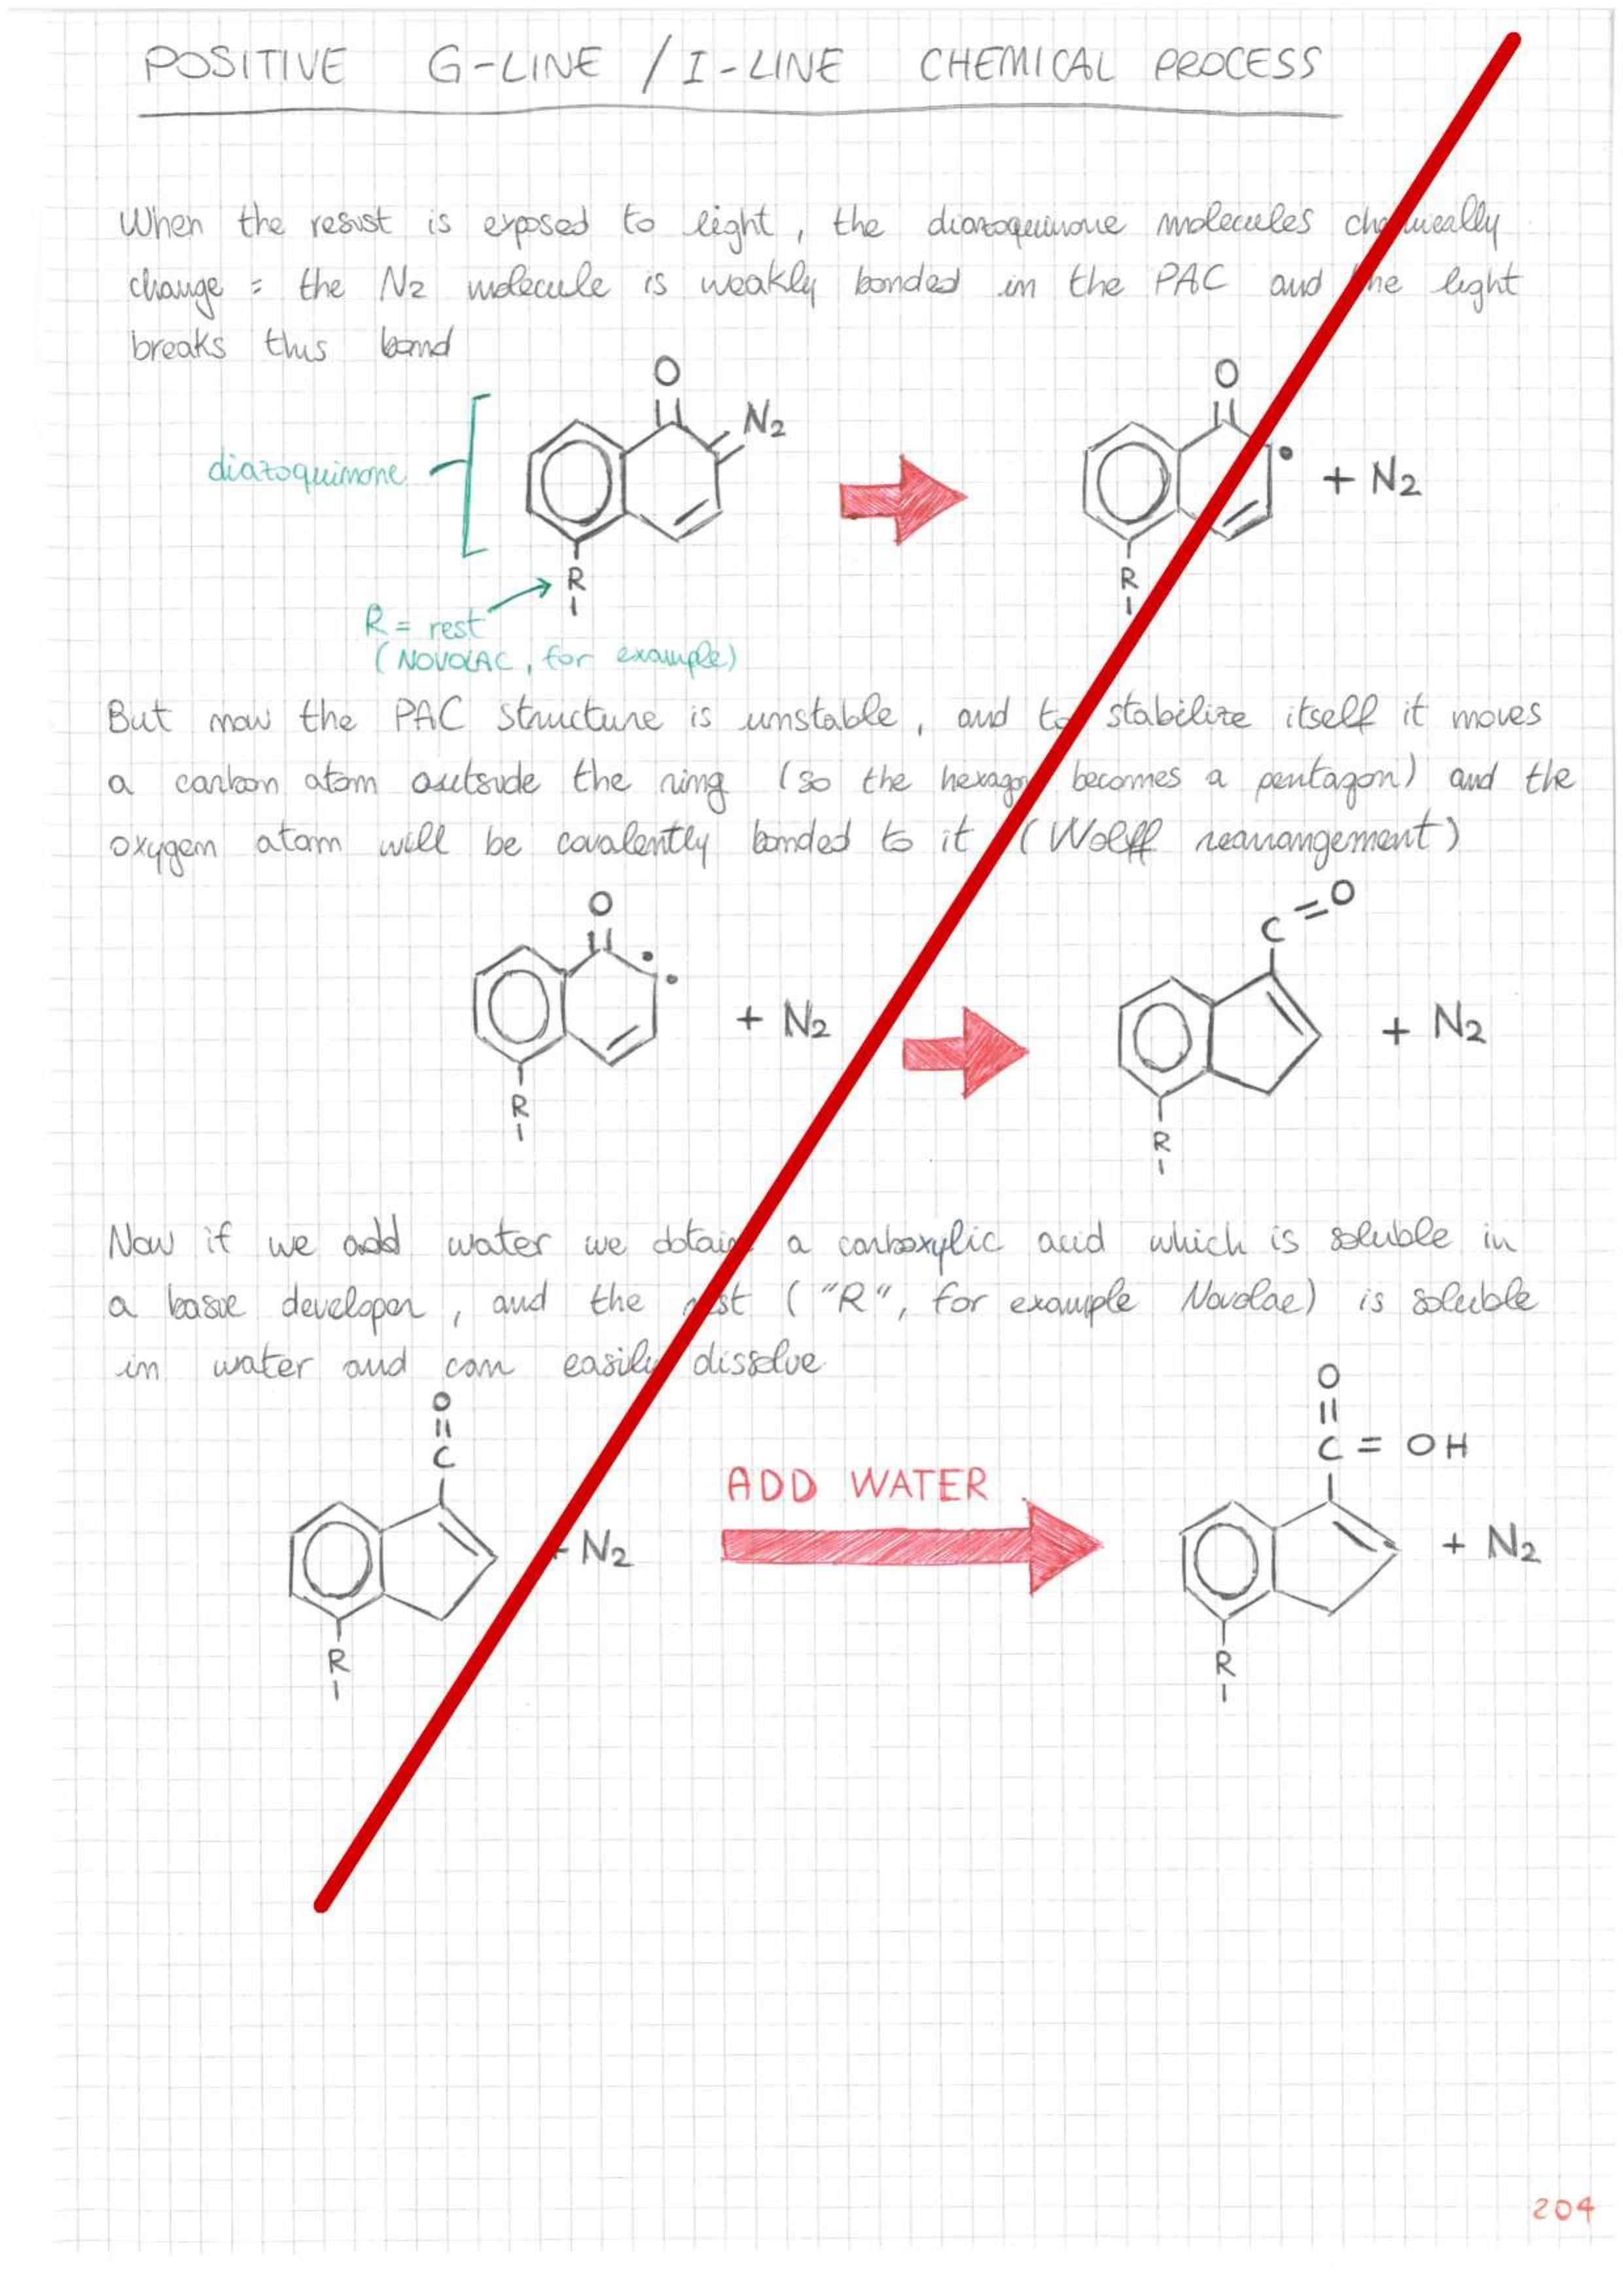 POSITIVE G-LINE / I-LINE CHEMICAL PROCESS
When the resist is exposed to light, the diazoquinone molecules chemically
change : the N2 molecule is weakly bonded in the PAC and the light
breaks this bond
O
N2
diazoquinone
R
R = rest
(NOVOLAC, for example)
O
+ N2
R
But now the PAC structure is unstable, and to stabilize itself it moves
a carbon atom outside the ring (so the hexagon becomes a pentagon) and the
oxygen atom will be covalently bonded to it (Wolff rearrangement)
O
+ N2
R
C=O
+ N2
R
Now if we add water we obtain a carboxylic acid which is soluble in
a basic developer, and the rest ("R", for example Novolac) is soluble
in water and can easily dissolve
O
C
+ N2
R
ADD WATER
O
C = OH
+ N2
R
204